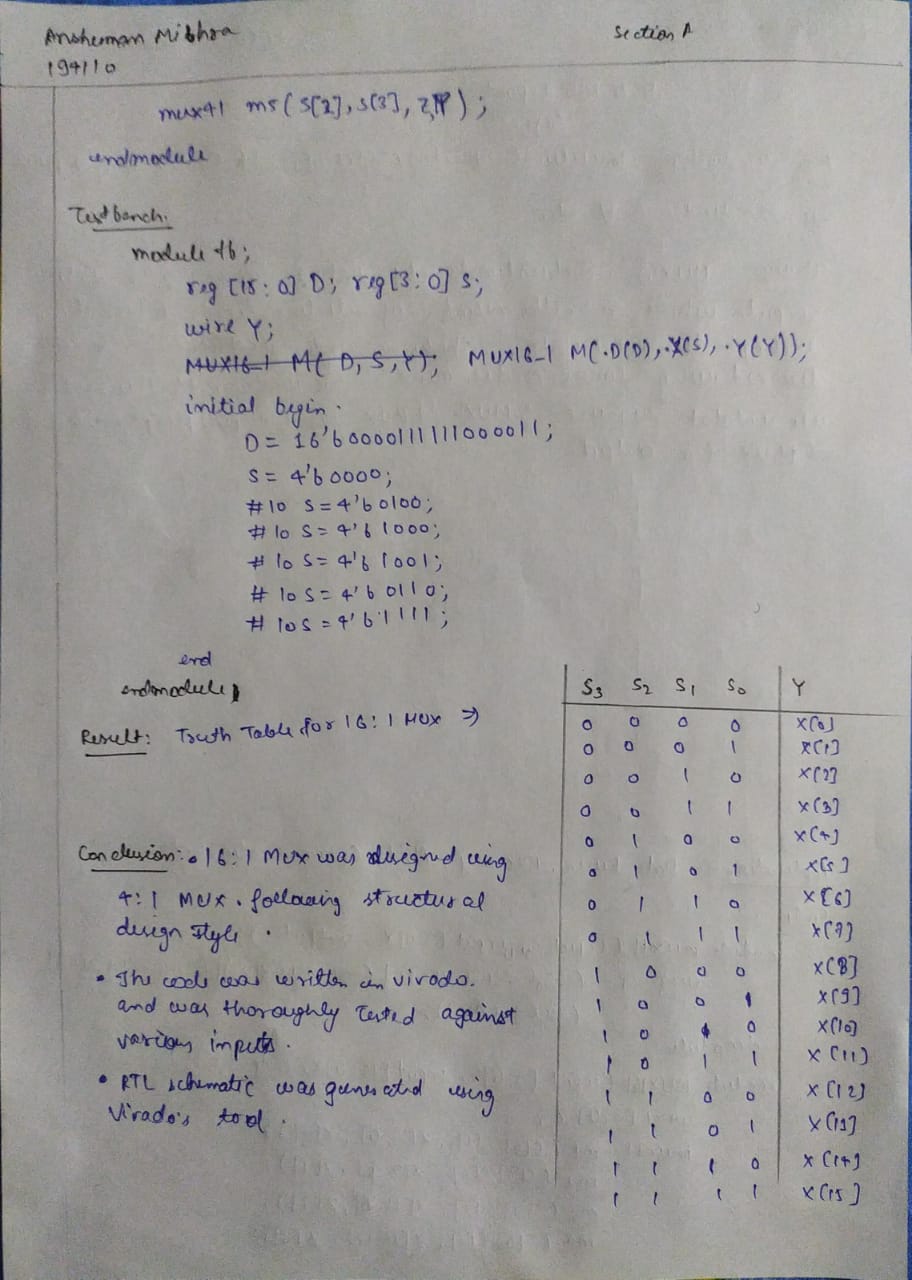 Ansheman Mishra
Section A
194110
mux41 m5 ( S[2], S[3], Z,Y);
endmodule
Testbench:
module tb;
reg [15:0] D; reg [3:0] S;
wire Y;
MUX16-1 M( D, S, Y); MUX16-1 M(.D(D),.X(S), .Y(Y));
initial begin.
D = 16'b0000111111000011;
S = 4'b0000;
#10 S=4'b0100;
#10 S=4'b1000;
#10 S=4'b1001;
#10 S=4'b0110;
#10 S=4'b1111;
end
endmodule
Result: Truth Table for 16:1 MUX ⇒
S3 S2 S1 S0 Y
0 0 0 0 X[0]
0 0 0 1 X[1]
0 0 1 0 X[2]
0 0 1 1 X[3]
0 1 0 0 X[4]
0 1 0 1 X[5]
0 1 1 0 X[6]
0 1 1 1 X[7]
1 0 0 0 X[8]
1 0 0 1 X[9]
1 0 1 0 X[10]
1 0 1 1 X[11]
1 1 0 0 X[12]
1 1 0 1 X[13]
1 1 1 0 X[14]
1 1 1 1 X[15]
Conclusion: • 16:1 Mux was designed using
4:1 MUX. following structural
design style.
• The code was written in vivado.
and was thoroughly Tested against
various inputs.
• RTL schematic was generated using
Vivado's tool.